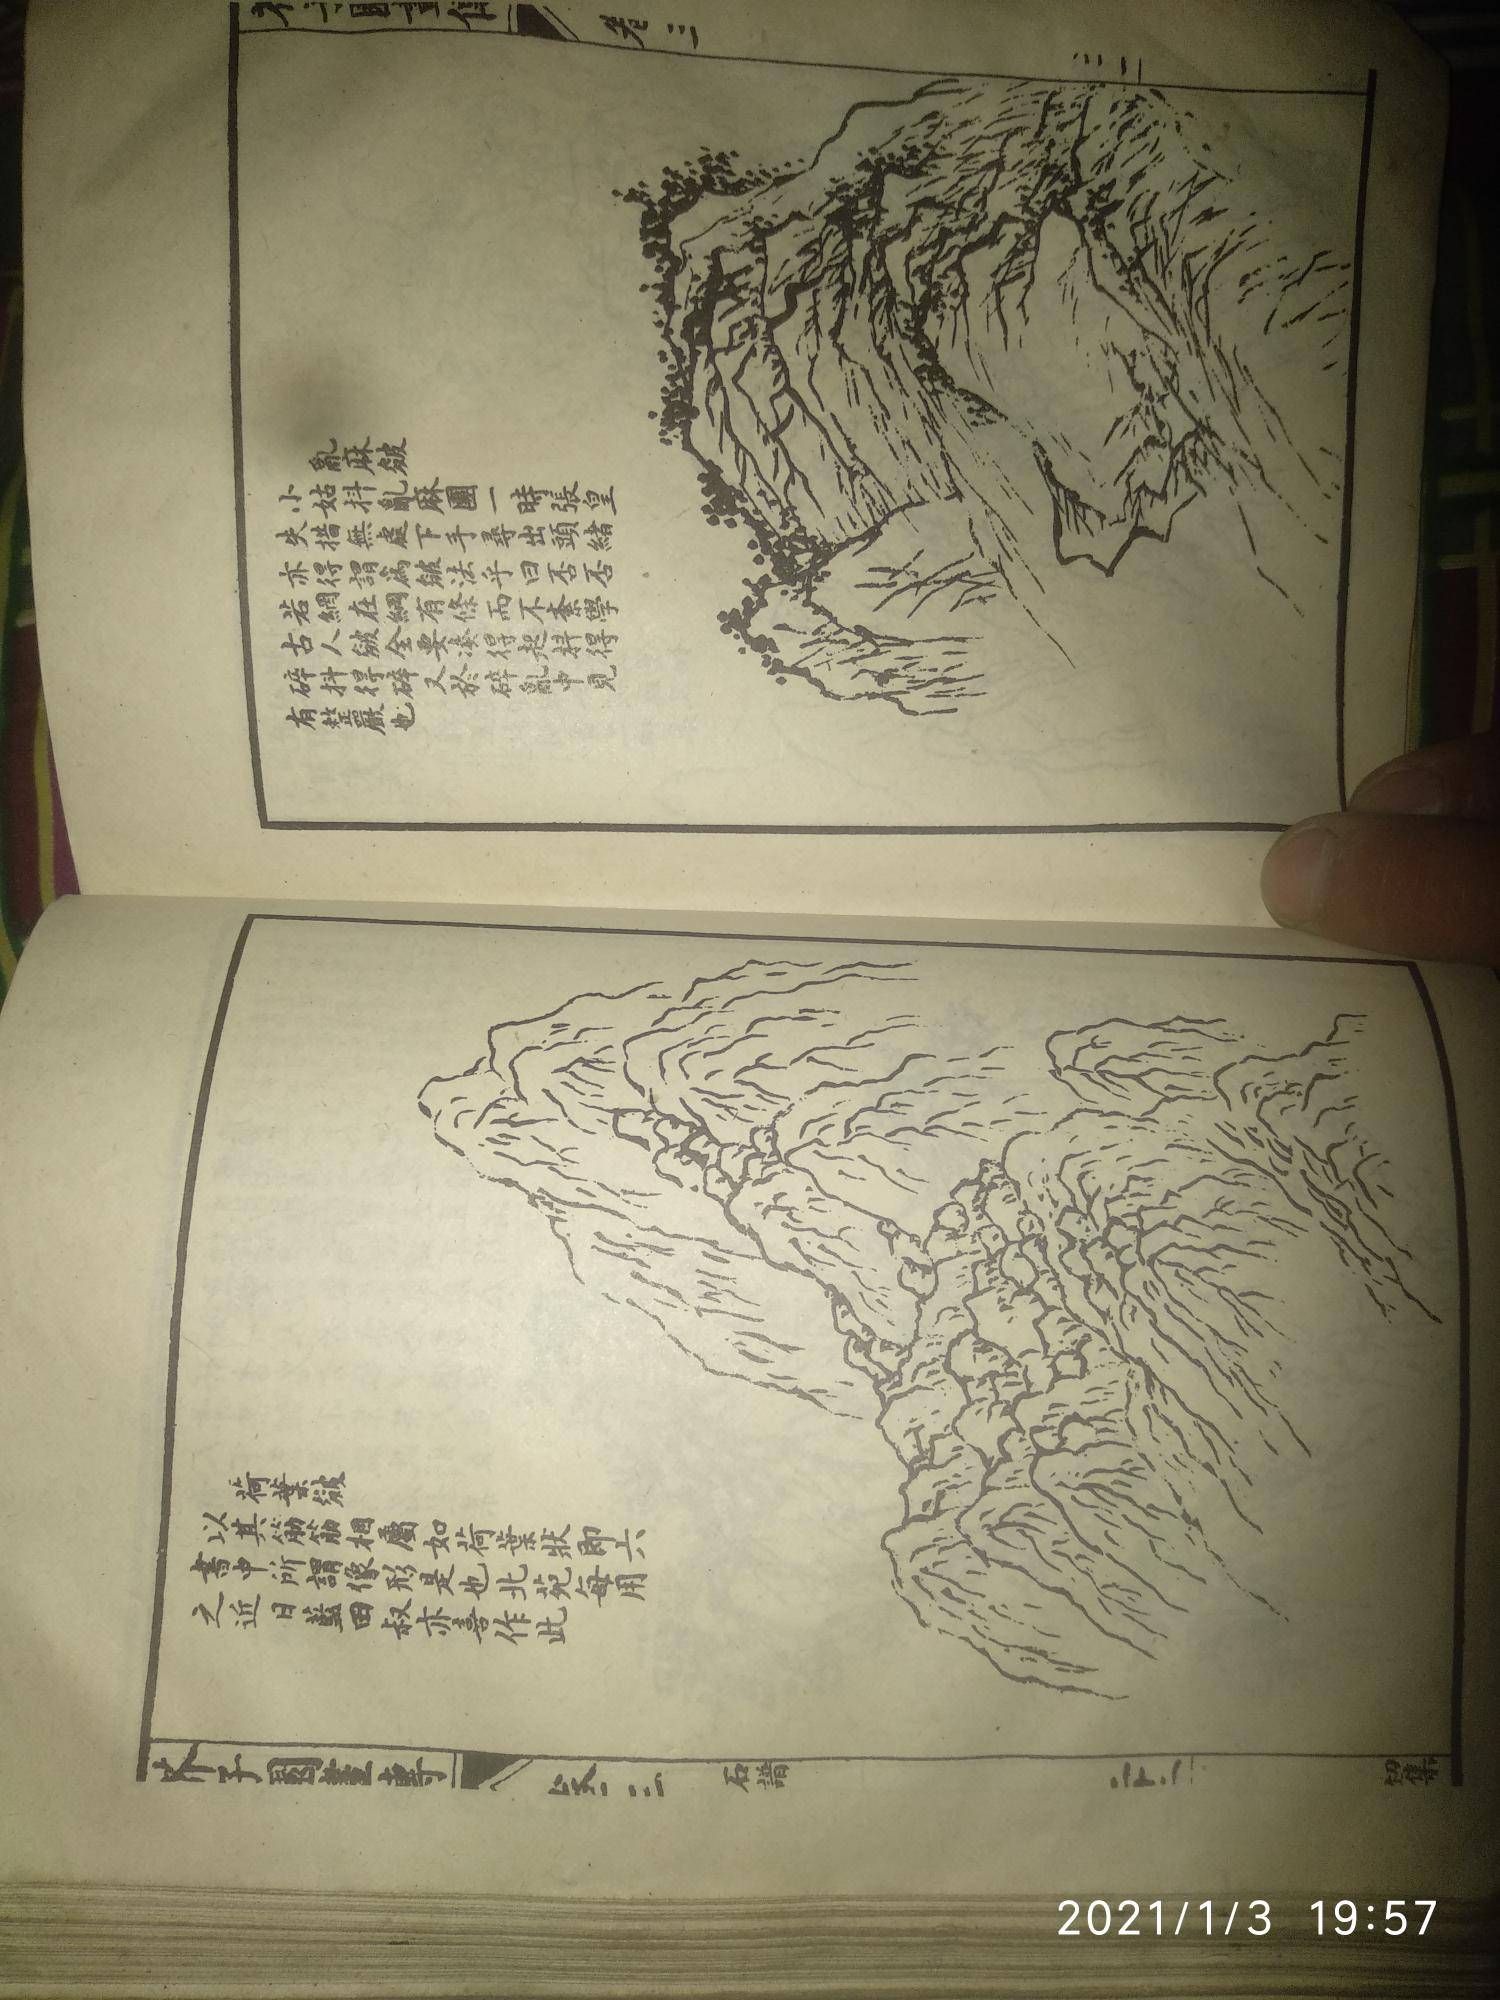 卷三
亂麻皴
小姑抖亂麻團一時張皇
失措無處下手尋出頭緒
亦得謂為皴法乎曰否否
若網在綱有條而不紊學
古人皴全要湊得起抖得
碎抖得碎又於碎亂中見
有整嚴也
荷葉皴
以其筋筋相屬如荷葉狀即六
書中所謂像形是也北苑每用
之近日藍田叔亦喜作此
芥子園畫傳 卷三 石譜 二十二 初集
2021/1/3 19:57